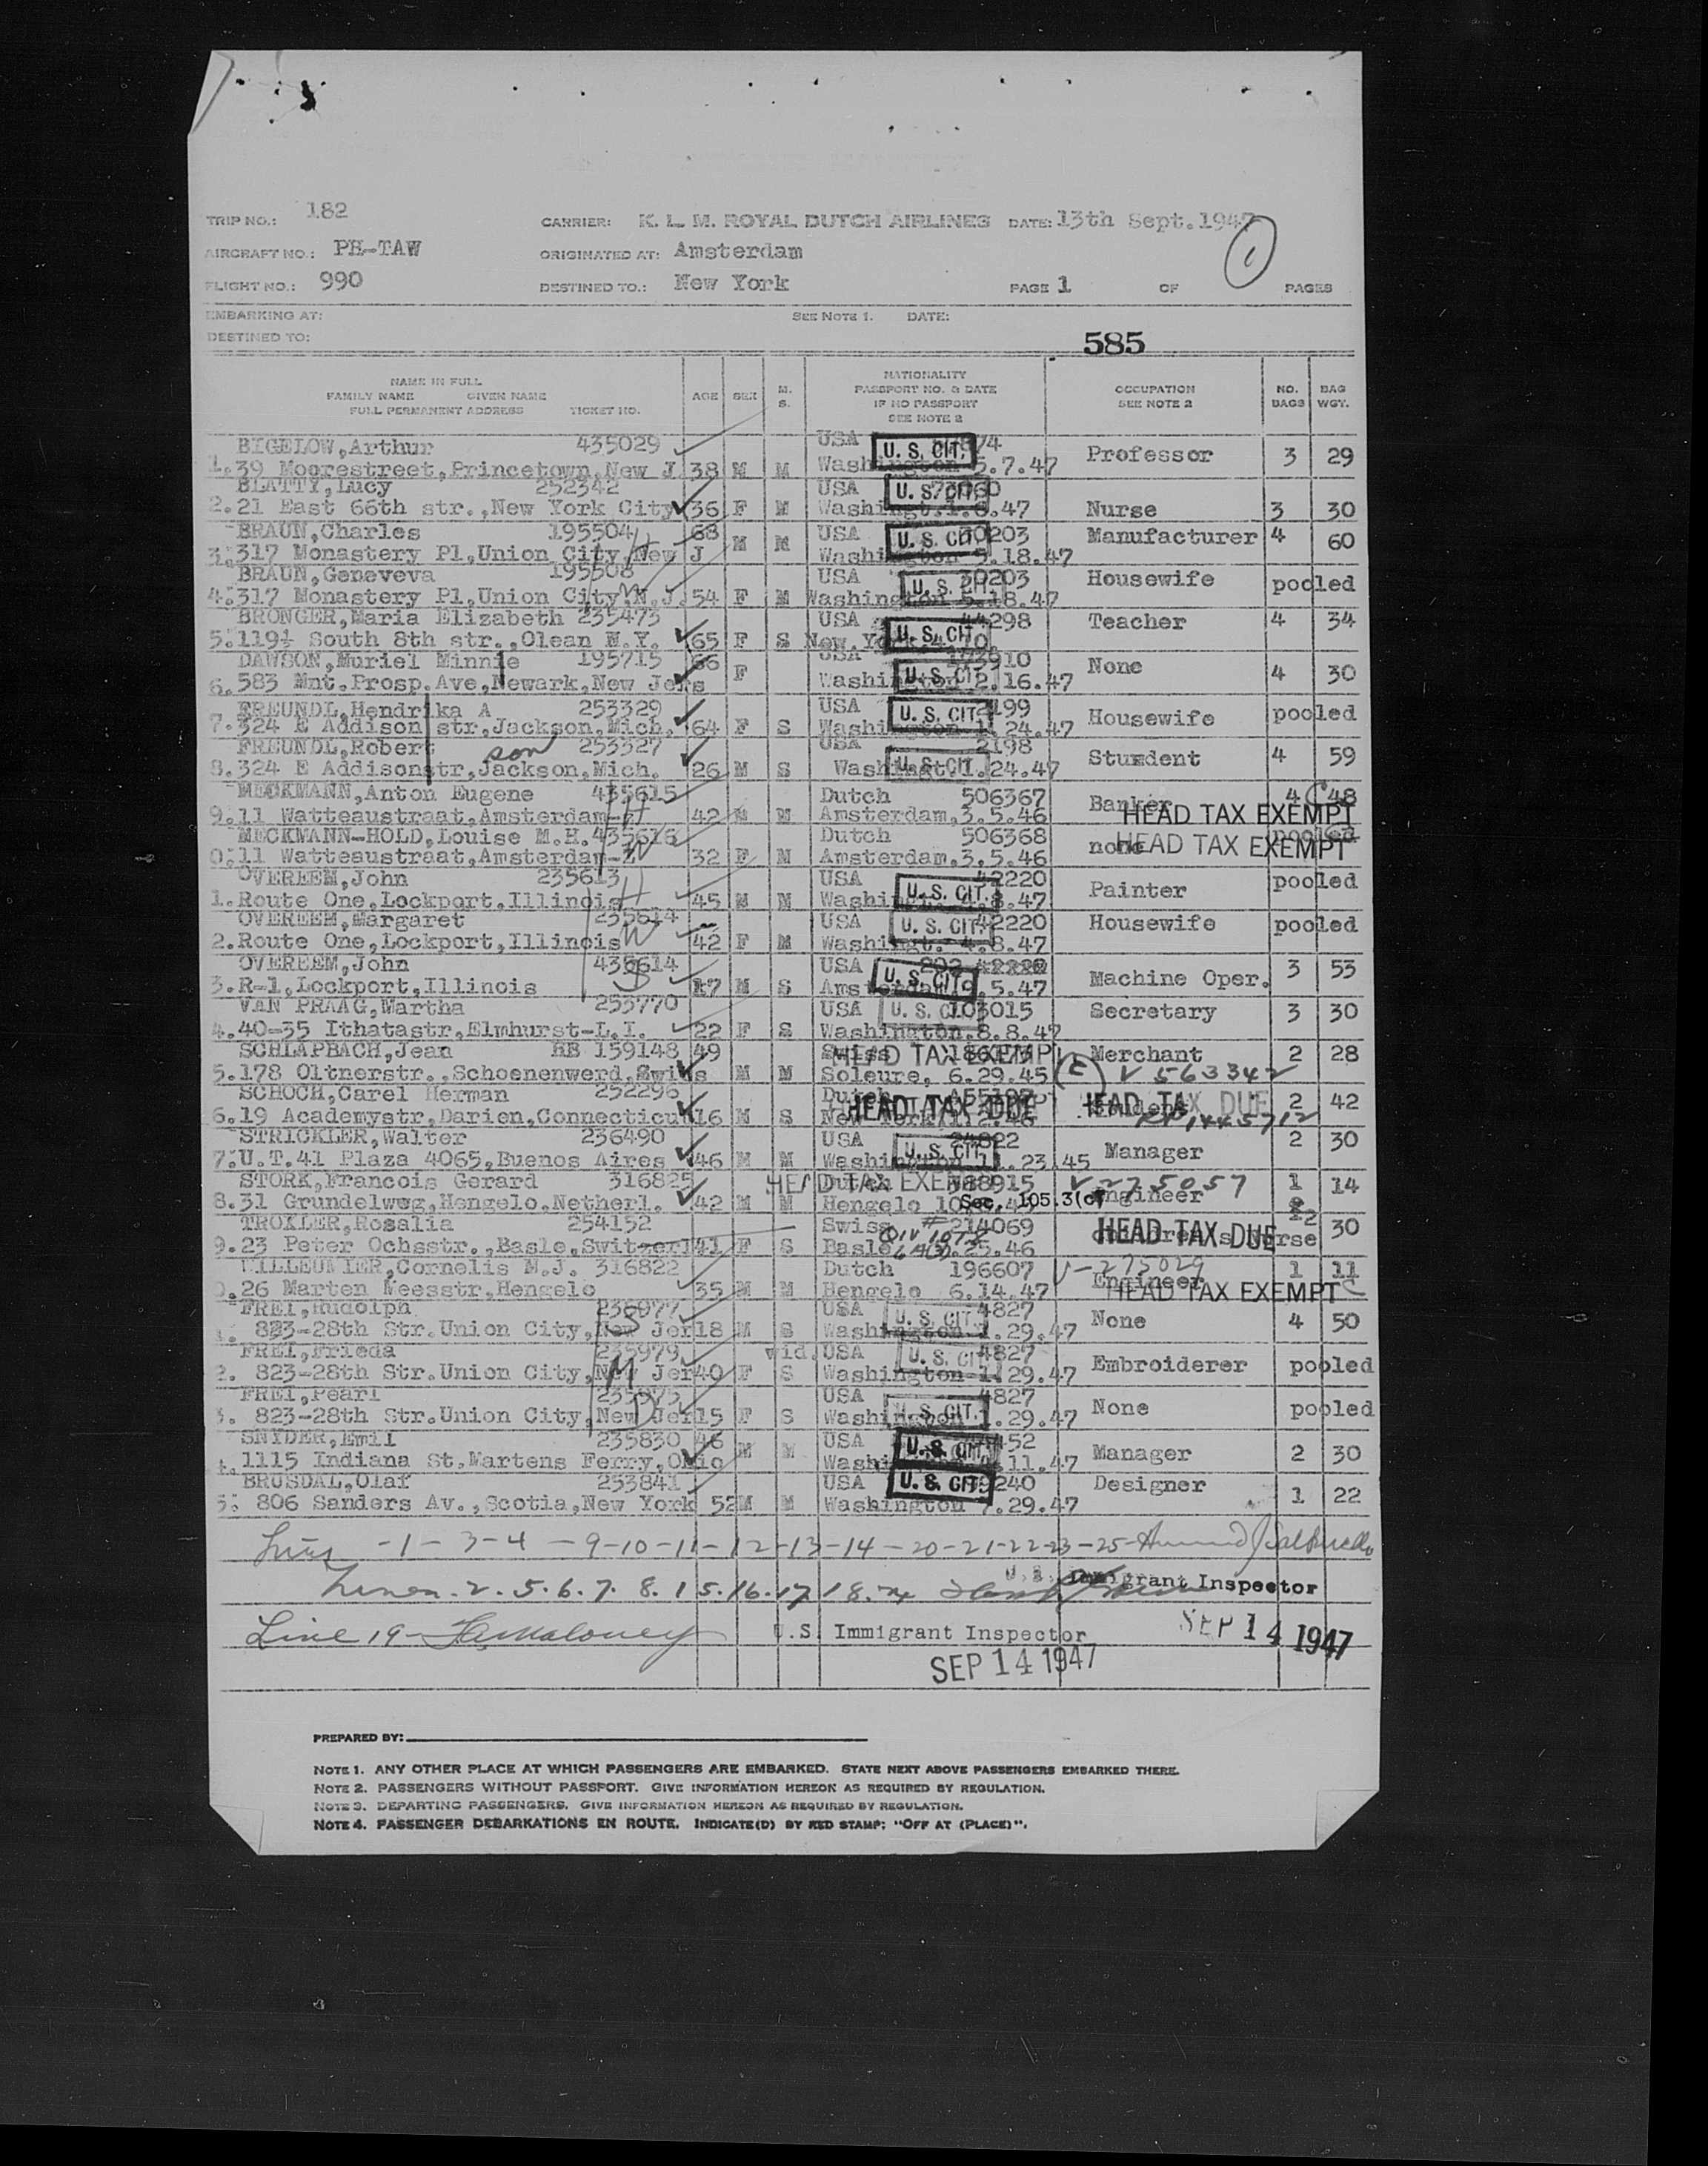 TRIP NO.: 182 CARRIER: K. L. M. ROYAL DUTCH AIRLINES DATE: 13th Sept. 1947
AIRCRAFT NO.: PH-TAW ORIGINATED AT: Amsterdam
FLIGHT NO.: 990 DESTINED TO.: New York PAGE 1 OF PAGES
EMBARKING AT: SEE NOTE 1. DATE:
DESTINED TO: 585
NAME IN FULL
FAMILY NAME GIVEN NAME
FULL PERMANENT ADDRESS TICKET NO.
AGE SEX M. S.
NATIONALITY
PASSPORT NO. & DATE
IF NO PASSPORT
SEE NOTE 2
OCCUPATION
SEE NOTE 2
NO. BAGS
BAG WGT.
BIGELOW, Arthur 435029 USA U. S. CIT.
1. 39 Moorestreet, Princetown, New J 38 M M Washington 5.7.47 Professor 3 29
BLATTY, Lucy 252342 USA U. S. CIT
2. 21 East 66th str., New York City 36 F M Washingt. .47 Nurse 3 30
BRAUN, Charles 195504 68 USA U. S. CIT 30203 Manufacturer 4
3. 317 Monastery Pl, Union City, New J M M Washington 5.18.47 60
BRAUN, Geneveva 195508 USA U. S. CIT 30203 Housewife pooled
4. 317 Monastery Pl, Union City, N.J. 54 F M Washington 5.18.47
BRONGER, Maria Elizabeth 235473 USA U. S. CIT 44298 Teacher 4 34
5. 119½ South 8th str., Olean N.Y. 65 F S New York
DAWSON, Muriel Minnie 195715 66 USA U. S. CIT None
6. 583 Mnt. Prosp. Ave, Newark, New Jers F Washington 2.16.47 4 30
FREUNDL, Hendrika A 253329 USA U. S. CIT. 2199 pooled
7. 324 E Addison str, Jackson, Mich. 64 F S Washington 1.24.47 Housewife
FREUNDL, Robert son 253327 USA 2198 Stumdent 4 59
8. 324 E Addisonstr, Jackson, Mich. 26 M S Washingt. U. S. CIT. 1.24.47
MECKMANN, Anton Eugene 435615 H Dutch 506367 Banker 4 48
9. 11 Watteaustraat, Amsterdam-Z 42 M M Amsterdam, 3.5.46 HEAD TAX EXEMPT
MECKMANN-HOLD, Louise M.H. 435616 W Dutch 506368 none pooled
0. 11 Watteaustraat, Amsterdam-Z 32 F M Amsterdam. 3.5.46 HEAD TAX EXEMPT
OVEREEM, John 235613 H USA U. S. CIT. 42220 Painter pooled
1. Route One, Lockport, Illinois 45 M M Washingt. 4.8.47
OVEREEM, Margaret 235614 W USA U. S. CIT. 42220 Housewife pooled
2. Route One, Lockport, Illinois 42 F M Washingt. 4.8.47
OVEREEM, John 435614 S USA U. S. CIT. Machine Oper. 3 53
3. R-1, Lockport, Illinois 17 M S Amsterdam .5.47
VAN PRAAG, Martha 253770 USA U. S. CIT 103015 Secretary 3 30
4. 40-35 Ithatastr, Elmhurst-L.I. 22 F S Washington. 8.8.47
SCHLAPBACH, Jean 159148 49 Swiss HEAD TAX EXEMPT Merchant 2 28
5. 178 Oltnerstr., Schoenenwerd, Swiss M M Soleure, 6.29.45 V 563342
SCHOCH, Carel Herman 252296 Dutch Student 2 42
6. 19 Academystr, Darien, Connecticut 16 M S New York HEAD TAX DUE HEAD TAX DUE
STRICKLER, Walter 236490 USA U. S. CIT 2 30
7. U.T. 41 Plaza 4065, Buenos Aires 46 M M Washington 11.23.45 Manager
STORK, Francois Gerard 316825 HEAD TAX EXEMPT Dutch V 275057 1 14
8. 31 Grundelweg, Hengelo, Netherl. 42 M M Hengelo Sec. 105.3(c) Engineer
TROXLER, Rosalia 254152 Swiss # 214069 HEAD TAX DUE 30
9. 23 Peter Ochsstr., Basle, Switzerl 41 F S Basle .25.46 Nurse
Cornelis M.J. 316822 Dutch 196607 V-275029 1 11
0. 26 Marten Meesstr, Hengelo 35 M M Hengelo 6.14.47 Engineer HEAD TAX EXEMPT
FREI, Rudolph 236977 S USA U. S. CIT. 4827 None 4 50
1. 823-28th Str. Union City, New Jer 18 M S Washington 1.29.47
FREI, Frieda 235979 M wid. USA U. S. CIT 4827 Embroiderer pooled
2. 823-28th Str. Union City, New Jer 40 F S Washington 1.29.47
FREI, Pearl 235975 D USA U. S. CIT. 4827 None pooled
3. 823-28th Str. Union City, New Jer 15 F S Washington 1.29.47
SNYDER, Emil 235830 46 USA U. S. CIT. Manager 2 30
4. 1115 Indiana St. Martens Ferry, Ohio M M Washington .11.47
BRUSDAL, Olaf 253841 USA U. S. CIT 240 Designer 1 22
5. 806 Sanders Av., Scotia, New York 52 M M Washington 7.29.47
Lines -1-3-4-9-10-11-12-13-14-20-21-22-23-25-
Lines. 2. 5. 6. 7. 8. 15. 16. 17 18. 24 U.S. Immigrant Inspector
Line 19- Maloney U.S. Immigrant Inspector SEP 14 1947
SEP 14 1947
PREPARED BY:
NOTE 1. ANY OTHER PLACE AT WHICH PASSENGERS ARE EMBARKED. STATE NEXT ABOVE PASSENGERS EMBARKED THERE.
NOTE 2. PASSENGERS WITHOUT PASSPORT. GIVE INFORMATION HEREON AS REQUIRED BY REGULATION.
NOTE 3. DEPARTING PASSENGERS. GIVE INFORMATION HEREON AS REQUIRED BY REGULATION.
NOTE 4. PASSENGER DEBARKATIONS EN ROUTE. INDICATE(D) BY RED STAMP; "OFF AT (PLACE)".